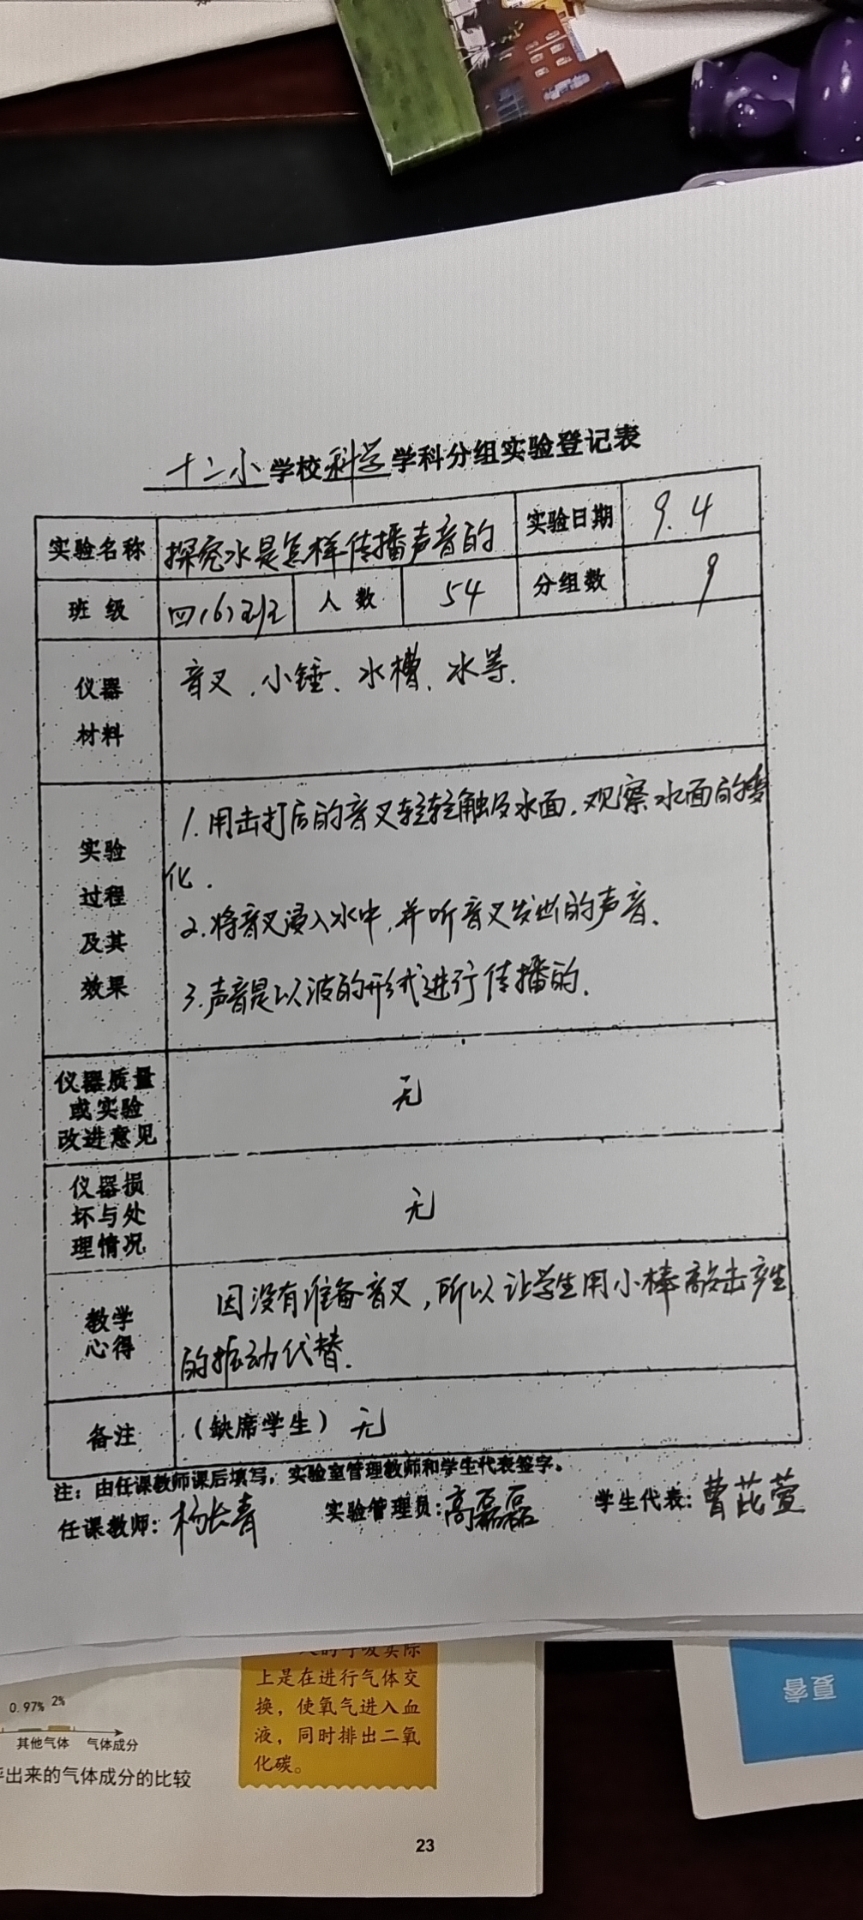 十二小学校科学学科分组实验登记表
实验名称 探究水是怎样传播声音的 实验日期 9.4
班级 四(6)班 人数 54 分组数 9
仪器
材料
音叉、小锤、水槽、水等.
实验
过程
及其
效果
1.用击打后的音叉轻轻触及水面.观察水面的变
化.
2.将音叉浸入水中,并听音叉发出的声音.
3.声音是以波的形式进行传播的.
仪器质量
或实验
改进意见
无
仪器损
坏与处
理情况
无
教学
心得
因没有准备音叉,所以让学生用小棒敲击产生
的振动代替.
备注 (缺席学生) 无
注:由任课教师课后填写,实验室管理教师和学生代表签字。
任课教师:杨长青 实验管理员:高磊磊 学生代表:曹芘萱
上是在进行气体交
换,使氧气进入血
液,同时排出二氧
化碳。
0.97% 2%
其他气体 气体成分
出来的气体成分的比较
23
夏睿